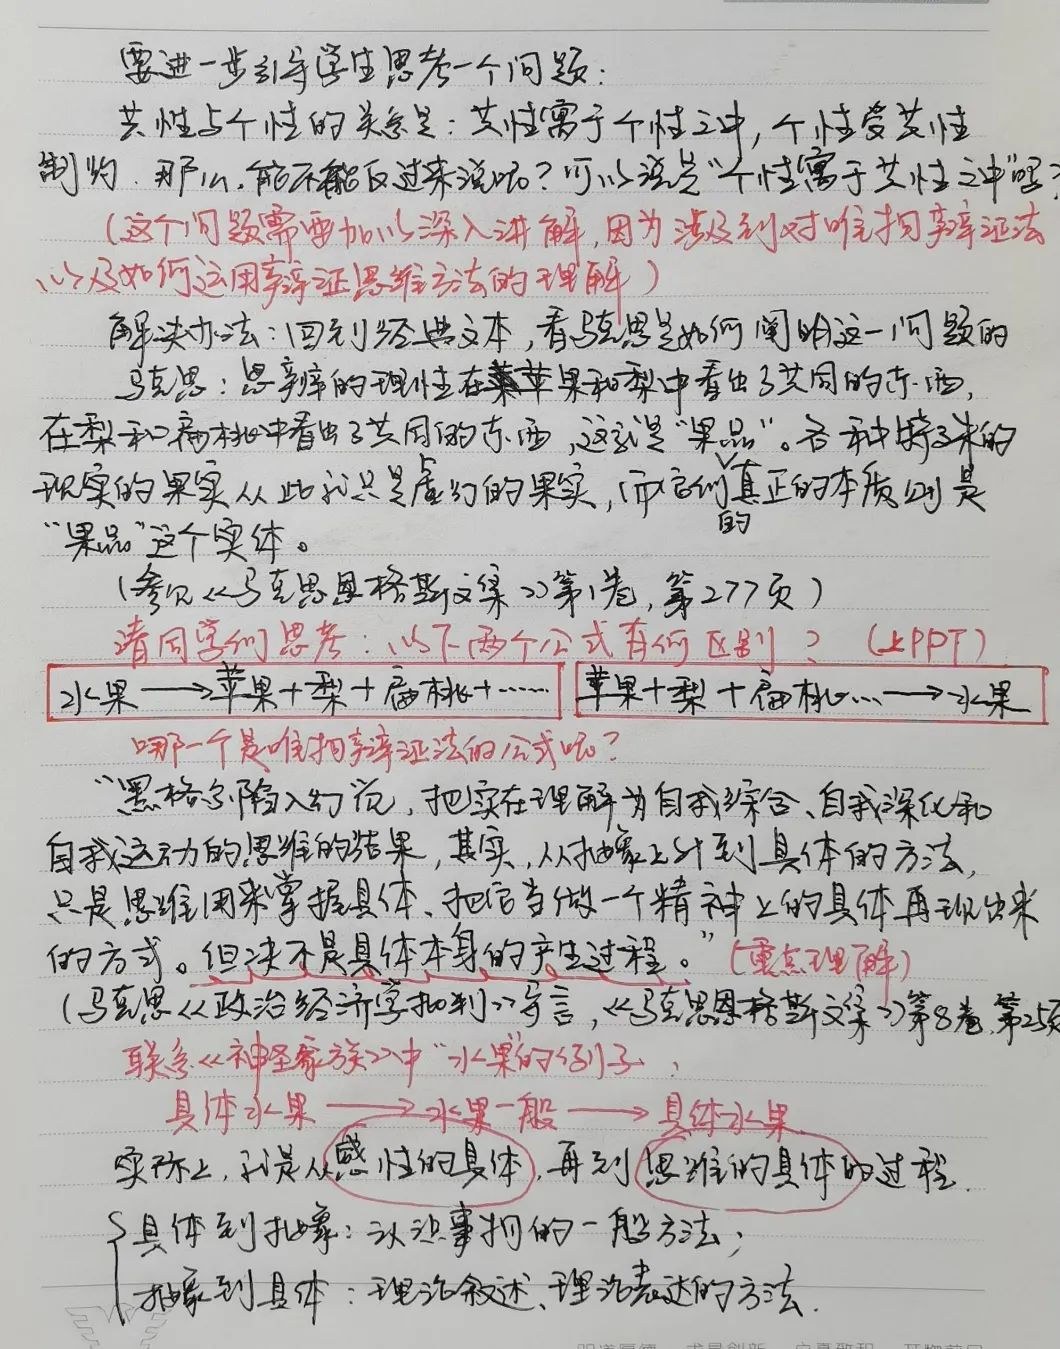 要进一步引导学生思考一个问题:
共性与个性的关系是:共性寓于个性之中,个性受共性
制约.那么,能不能反过来说呢?可以说是“个性寓于共性之中”吗?
(这个问题需要加以深入讲解,因为涉及到对唯物辩证法
以及如何运用辩证思维方法的理解)
解决办法:回到经典文本,看马克思是如何阐明这一问题的
马克思:思辨的理性在苹果和梨中看出了共同的东西,
在梨和扁桃中看出了共同的东西,这就是“果品”。各种特殊的
现实的果实从此就只是虚幻的果实,而它们的真正的本质则是
“果品”这个实体。
(参见《马克思恩格斯文集》第1卷,第277页)
请同学们思考:以下两个公式有何区别?(上PPT)
水果→苹果+梨+扁桃+…… 苹果+梨+扁桃…→水果
哪一个是唯物辩证法的公式呢?
“黑格尔陷入幻觉,把实在理解为自我综合、自我深化和
自我运动的思维的结果,其实,从抽象上升到具体的方法,
只是思维用来掌握具体、把它当做一个精神上的具体再现出来
的方式。但决不是具体本身的产生过程。”(重点理解)
(马克思《政治经济学批判》导言,《马克思恩格斯文集》第8卷,第25页
联系《神圣家族》中“水果”的例子,
具体水果→水果一般→具体水果
实际上,就是从感性的具体,再到思维的具体的过程.
具体到抽象:认识事物的一般方法;
抽象到具体:理论叙述、理论表达的方法.